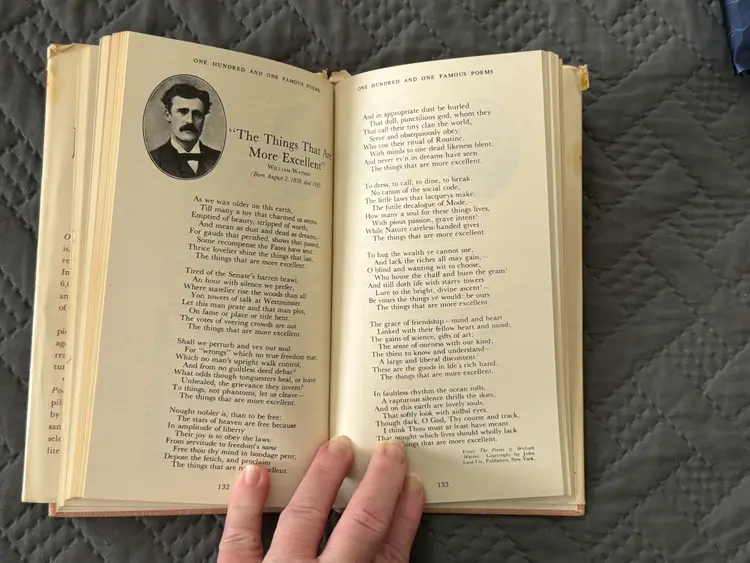 ONE HUNDRED AND ONE FAMOUS POEMS
"The Things That Are
More Excellent"
WILLIAM WATSON
(Born August 2, 1858, died 1935)
As we wax older on this earth,
Till many a toy that charmed us seems
Emptied of beauty, stripped of worth,
And mean as dust and dead as dreams,—
For gauds that perished, shows that passed,
Some recompense the Fates have sent:
Thrice lovelier shine the things that last,
The things that are more excellent.
Tired of the Senate's barren brawl,
An hour with silence we prefer,
Where statelier rise the woods than all
Yon towers of talk at Westminster.
Let this man prate and that man plot,
On fame or place or title bent:
The votes of veering crowds are not
The things that are more excellent.
Shall we perturb and vex our soul
For "wrongs" which no true freedom mar,
Which no man's upright walk control,
And from no guiltless deed debar?
What odds though tonguesters heal, or leave
Unhealed, the grievance they invent?
To things, not phantoms, let us cleave—
The things that are more excellent.
Nought nobler is, than to be free:
The stars of heaven are free because
In amplitude of liberty
Their joy is to obey the laws.
From servitude to freedom's name
Free thou thy mind in bondage pent;
Depose the fetich, and proclaim
The things that are more excellent.
132
ONE HUNDRED AND ONE FAMOUS POEMS
And in appropriate dust be hurled
That dull, punctilious god, whom they
That call their tiny clan the world,
Serve and obsequiously obey:
Who con their ritual of Routine,
With minds to one dead likeness blent,
And never ev'n in dreams have seen
The things that are more excellent.
To dress, to call, to dine, to break
No canon of the social code,
The little laws that lacqueys make,
The futile decalogue of Mode,—
How many a soul for these things lives,
With pious passion, grave intent!
While Nature careless-handed gives
The things that are more excellent.
To hug the wealth ye cannot use,
And lack the riches all may gain,—
O blind and wanting wit to choose,
Who house the chaff and burn the grain!
And still doth life with starry towers
Lure to the bright, divine ascent!—
Be yours the things ye would: be ours
The things that are more excellent.
The grace of friendship—mind and heart
Linked with their fellow heart and mind;
The gains of science, gifts of art;
The sense of oneness with our kind;
The thirst to know and understand—
A large and liberal discontent:
These are the goods in life's rich hand,
The things that are more excellent.
In faultless rhythm the ocean rolls,
A rapturous silence thrills the skies;
And on this earth are lovely souls,
That softly look with aidful eyes.
Though dark, O God, Thy course and track,
I think Thou must at least have meant
That nought which lives should wholly lack
The things that are more excellent.
From The Poems of William
Watson. Copyright by John
Lane Co., Publishers, New York.
133